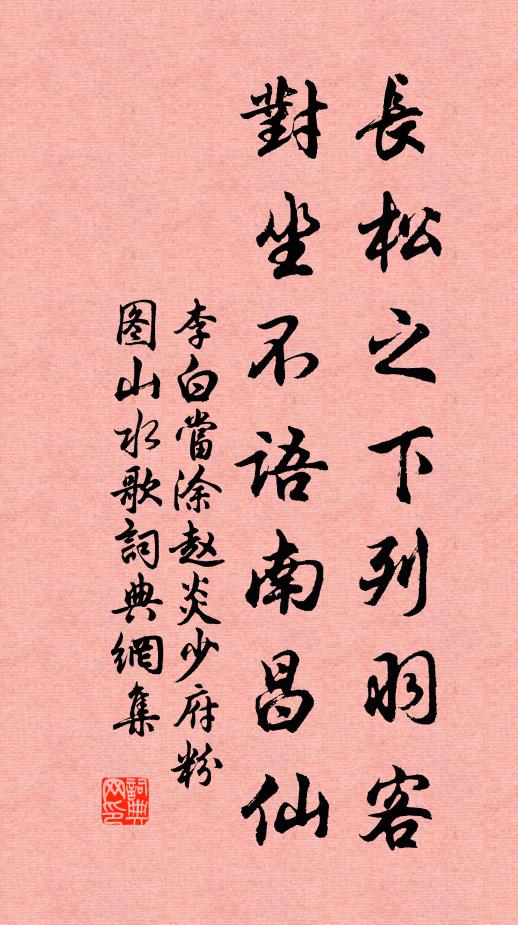 長松之下列羽客
對坐不語南昌仙
李白當涂赵炎少府粉
图山水歌詞典網集
詞典网印